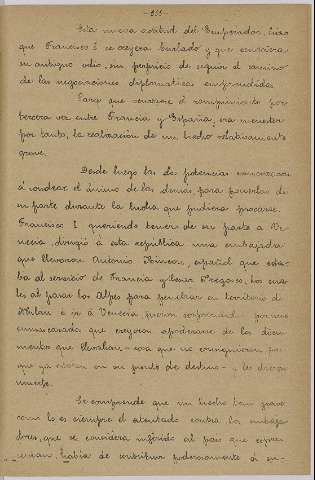 Esta nueva actitud del Emperador, hizo
que Francisco I se creyera burlado y que
su antiguo odio, sin perjuicio de seguir el camino
de las negociaciones diplomáticas emprendidas.
Para que se rompimiento por
tercera vez entre Francia y España, era menester
por tanto, la realización de un hecho relativamente
grave.
Desde luego las dos potencias comenzaron
á sondear el ánimo de las demás para ponerlas de
su parte durante la lucha que pudiera
Francisco I queriendo tener de su parte a Ve-
necia, dirigió á esta república una embajada
que llevaron Antonio Rincon, español que esta-
ba al servicio de Francia y César Fregoso, los cua-
les al pasar los Alpes para penetrar en territorio de
Milan é ir á Venecia, fueron sorprendidos por unos
enmascarados que creyeron apoderarse de los docu-
mentos que llevaban — cosa que no consiguieron por-
que ya estaban en su punto de destino — y les dieron
muerte.
Se comprende que un hecho tan grave
como lo es siempre el atentado contra los embaja-
dores, que se considera inferido al país que repre-
sentan, había de contribuir poderosamente á en-